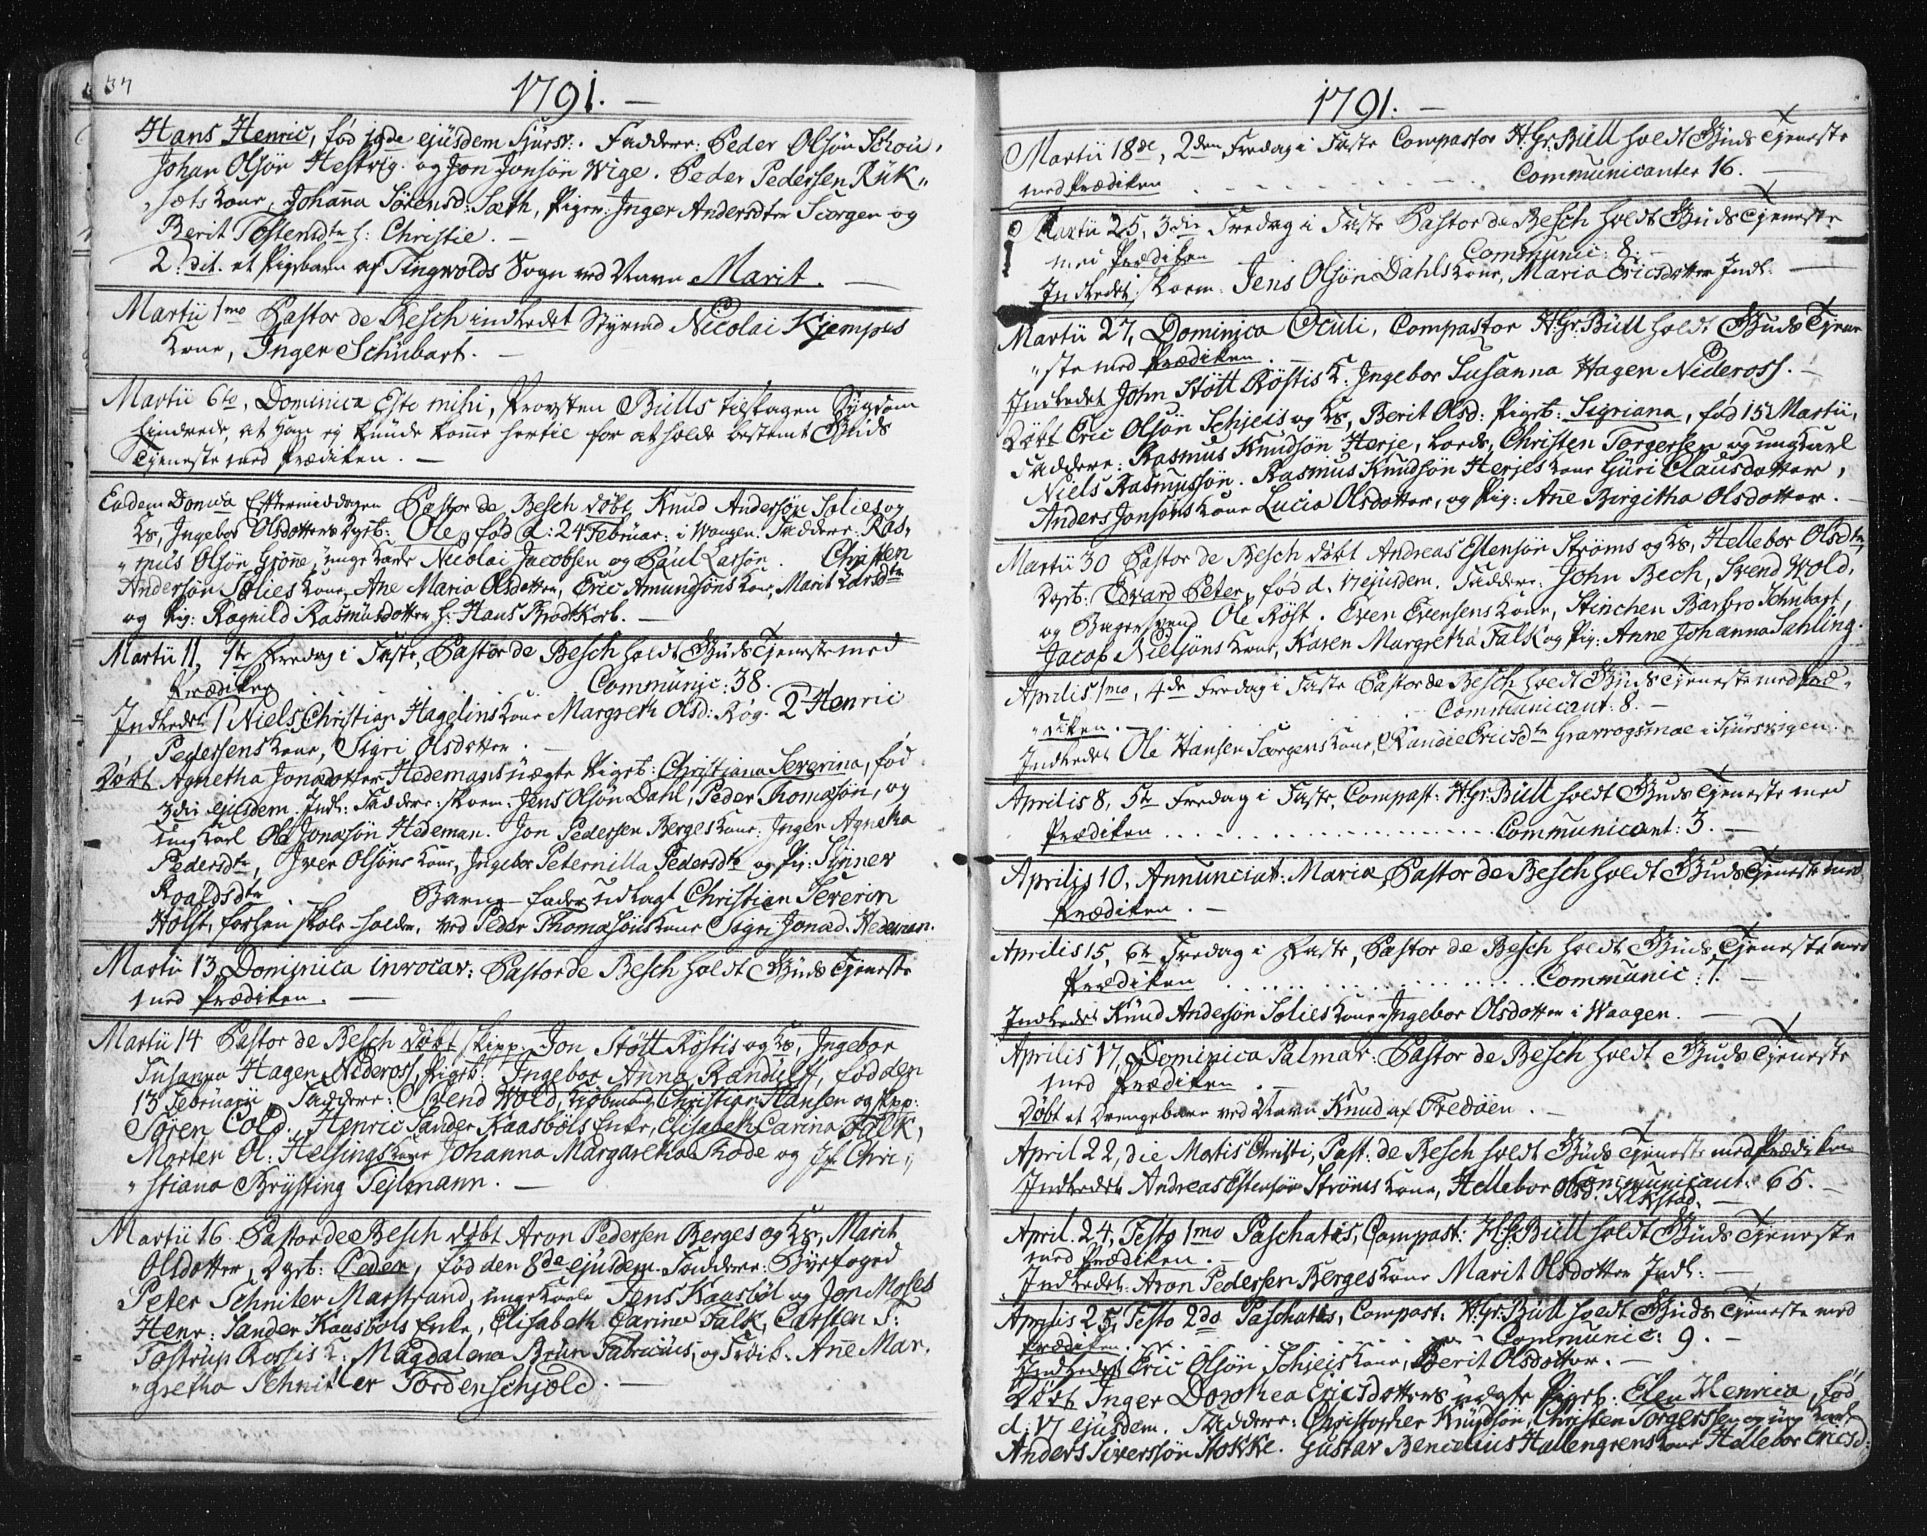 37
1791. —
Hans Henric, fød 19de ejusdem Fjürsv:. Faddere: Peder Olsøn
Johan Olsøn Hestvig. og Jon Jonsøn Wige. Peder Pedersen Rük„
„sæts Kone, Johanna Sørensd: Sæth, Piger: Inger Andersdtr Siorgen og
Berit Tostensdtr h: Christie. —
2. dit. et Pigebarn af Tingvolds Sogn ved Navn Marit. —
Martii 1mo Pastor de Besch indledet Styrmd Nicolai Kjempes
Kone, Inger Schübart. —
Martii 6te, Dominica Esto mihi, Provsten Bülls tilslagen Sygdom
hindrede, at han ej kunde komme hertil for at holde bestemt Guds
Tjeneste med Prædiken. —
Eadem Domca Eftermiddagen Pastor de Besch døbt Knud Andersøn Solies og
Ks, Ingebor Olsdotters Dgsb: Ole, fød d: 24 Februar: i Waagen. Faddere: Ras„
„mus Olsøn Grønne, unge Karle Nicolai Jacobsen og Paul Larsøn. Christen
Andersøn Solies Kone, Ane Maria Olsdotter, Eric Amundsøns Kone, Marit Larsdtr
og Pig: Ragnild Rasmusdotter h: Hans Brodtkorb. —
Martii 11, 1te Fredag i Faste, Pastor de Besch holdt Guds Tjeneste med
Prædiken Communic: 38.
Indledet 1 Niels Christian Hagelins Kone Margreth Olsd: Røg. 2 Henric
Pedersens Kone, Sigri Olsdotter. —
Døbt Agnetha Jonasdotter Hedemans uægte Pigeb: Christiana Severina, fød
3die ejusdem. Indl: Faddere: Skoem: Jens Olsøn Dahl, Peder Thomasøn, og
ung Karl Ole Jonasøn Hedeman. Jon Pedersen Berges Kone: Inger Agnetha
Pedersdtr, Iver Olsøns Kone, Ingebor Peternilla Pedersdtr og Pig: Synnev
Roaldsdtr Barne-fader udlagt Christian Severin
Holst, forhen skole-holder, ved Peder Thomasøns Kone Sigri Jonasd. Hedeman.
Martii 13, Dominica invocav: Pastor de Besch holdt Guds Tjeneste
med Prædiken. —
Martii 14 Pastor de Besch døbt Skipp. Jon Støtt Røstis og Ks, Ingebor
Susanna Hagen Nideross, Pigeb: Ingebor Anna Randulff, fød den
13 Februarii Faddere: Svend Wold, Kiøbmand Christian Hansen og Skpp:
Søren Cold. Henric Sander Kaasbøls Enke, Elisabeth Carina Falk,
Morten Ol: Helsings Kone Johanna Margaretha Rhode og Jfr Chri„
„stiana Brysting Teilmann. —
Martii 16 Pastor de Besch døbt Aron Pedersen Berges og Ks, Marit
Olsdotter, Dgsb: Peder, fød den 8de ejusdem. Faddere: Byefoged
Peter Schnitler Marstrand, unge Karle Jens Kaasbøl og Jon Moses
Henr: Sander Kaasbøls Enke, Elisabeth Carina Falk, Carsten T:
Tostrup Rossis K: Magdalena Brün Fabricius, og Frøik. Ane Mar„
„gretha Schnitler Tordenschjold. —
1791. —
Martii 18de, 2den Fredag i Faste Compastor H: Gr: Büll holdt Guds Tjeneste
med Prædiken . . . . . . . . Communicanter 16. —
Martii 25, 3die Fredag i Faste Pastor de Besch holdt Guds Tjeneste
med Prædiken Communic: 8. —
Indledet Skoem. Jens Olsøn Dahls Kone, Maria Ericsdotter Indl. —
Martii 27, Dominica Oculi, Compastor H: Gr: Büll holdt Guds Tjene
„ste med Prædiken. —
Indledet John Støtt Røstis K: Ingebor Susanna Hagen Nideross. —
Døbt Eric Olsøn Schjeis og Ks, Berit Olsd: Pigeb: Sigriana, fød 15 Martii,
Faddere: Rasmus Knudsøn Herje, Lods, Christen Torgersen og ung Karl
Niels Rasmussøn. Rasmus Knudsøn Herjes Kone Guri Clausdotter,
Anders Jonsøns Kone Lucia Olsdotter, og Pig: Ane Birgitha Olsdotter. —
Martii 30 Pastor de Besch døbt Andreas Estensøn Strøms og Ks, Hellebor Olsdtr
Dgsb: Edvard Peter, fød d. 17 ejusdem. Faddere: John Bech, Svend Wold,
og Bager svend Ole Røst. Even Evensens Kone, Stinchen Barbro Schubart,
Jacob Nielsøns Kone, Karen Margretha Falk og Pig: Anne Johanna Sahling.
Aprilis 1mo, 4de Fredag i Faste Pastor de Besch holdt Guds Tjeneste med Præ„
„diken. — Communicant: 8. —
Indledet Ole Hansen Siorgens Kone, Randie Ericsdtr Gravrogsmoe i Fjürsvigen.
Aprilis 8, 5te Fredag i Faste, Compast: H: Gr: Büll holdt Guds Tjeneste med
Prædiken . . . . . . . . Communicant: 3. —
Aprilis 10, Annunciat: Mariæ, Pastor de Besch holdt Guds Tjeneste med
Prædiken. —
Aprilis 15, 6te Fredag i Faste, Pastor de Besch holdt Guds Tjeneste med
Prædiken . . . . . . . . Communic: 7. —
Indledet Knud Andersøn Solies Kone Ingebor Olsdotter i Waagen. —
Aprilis 17, Dominica Palmar: Pastor de Besch holdt Guds Tjeneste
med Prædiken. —
Døbt et Drengebarn ved Navn Knud af Fredøen. —
April 22, die Mortis Christi, Past: de Besch holdt Guds Tjeneste med Prædiken
Communicant: 65. —
Indledet Andreas Estensøn Strøms Kone, Hellebor Olsd: Nekstad. —
April. 24, Festo 1mo Paschatis, Compast: H: Gr: Büll holdt Guds Tjeneste
med Prædiken. —
Indledet Aron Pedersen Berges Kone Marit Olsdotter Indl: —
Aprilis 25, Festo 2do Paschatis, Compast: H: Gr: Büll holdt Guds Tjeneste med
Prædiken. . . . . . . Communic: 9. —
Indledet Eric Olsøn Schjeis Kone, Berit Olsdotter. —
Døbt Inger Dorothea Ericsdotters uægte Pigeb. Elen Henrica, fød
d: 17 ejusdem. Faddere: Christopher Knudsøn, Christen Torgerssen og ung Karl
Anders Siverssøn Stokke. Gustav Bencelius Hallengrens Kone Hellebor Ericsd: